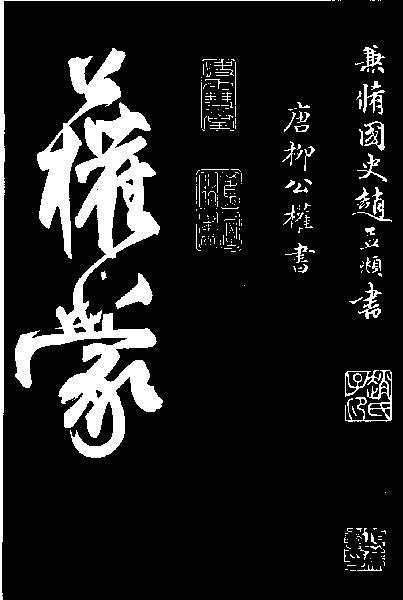 兼脩國史趙孟頫書
唐柳公權書
公權蒙
趙氏子昂